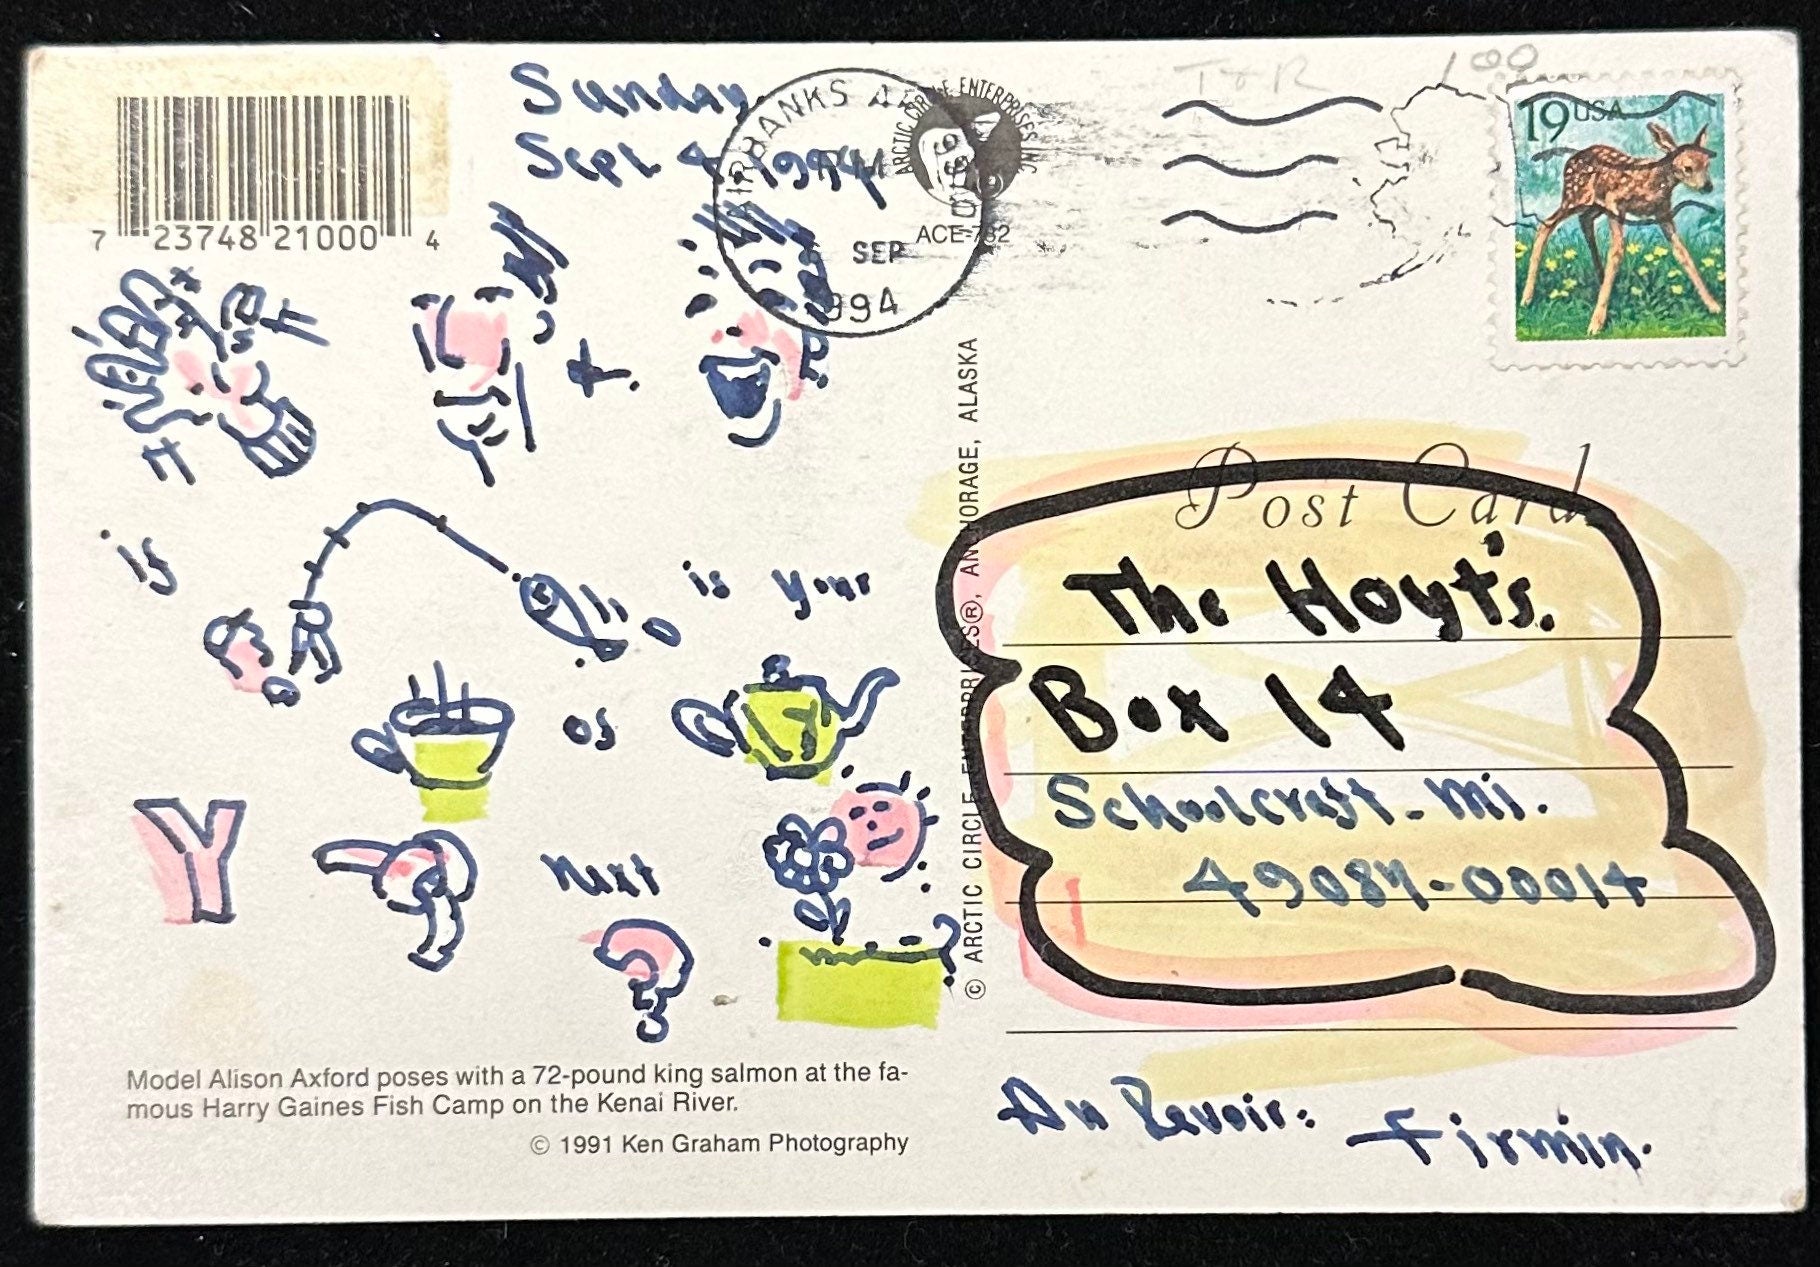 7 23748 21000 4
Sunday
Sept 4 1994
FAIRBANKS AK
SEP
1994
ARCTIC CIRCLE ENTERPRISES INC
ACE-782
100
19 USA
+
if
is your
as
Y
next
?
Model Alison Axford poses with a 72-pound king salmon at the fa-
mous Harry Gaines Fish Camp on the Kenai River.
© 1991 Ken Graham Photography
© ARCTIC CIRCLE ENTERPRISES®, ANCHORAGE, ALASKA
Post Card
The Hoyt's.
Box 14
Schoolcraft - Mi.
49087-00014
Au Revoir:
Firmin.